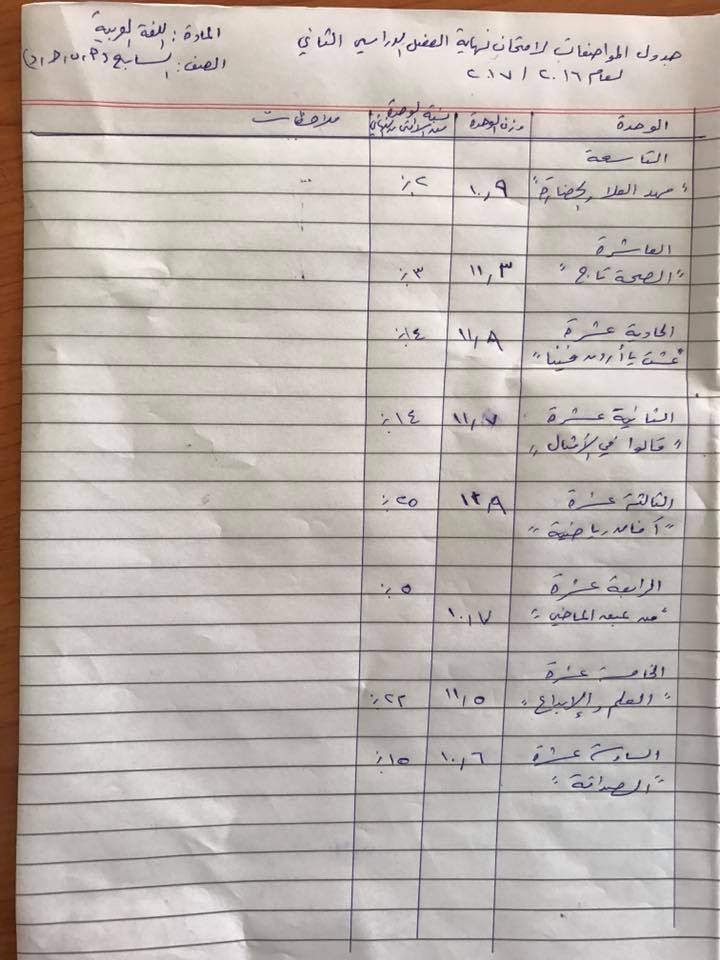 جدول المواصفات لامتحان نهاية الفصل الدراسي الثاني
لعام ٢٠١٦ / ٢٠١٧
المادة : اللغة العربية
الصف : السابع (أ، ب، ج، د)
الوحدة وزن الوحدة نسبة الوحدة من الامتحان النهائي ملاحظات
التاسعة
"مهد العلا والحضارة" ١٠,٩ ٢٪
العاشرة
"الصحة تاج" ١١,٣ ٣٪
الحادية عشرة ١١,٨ ١٤٪
"عشت يا أردن فينا"
الثانية عشرة ١١,٧ ١٤٪
"قالوا في الأمثال"
الثالثة عشرة ١٢٨ ٢٥٪
"آفاق رياضية"
الرابعة عشرة ٥٪
"من عبق الماضي" ١٠,٧
الخامسة عشرة
"العلم والإبداع" ١١,٥ ٢٢٪
السادسة عشرة ١٠,٦ ١٥٪
"الصداقة"